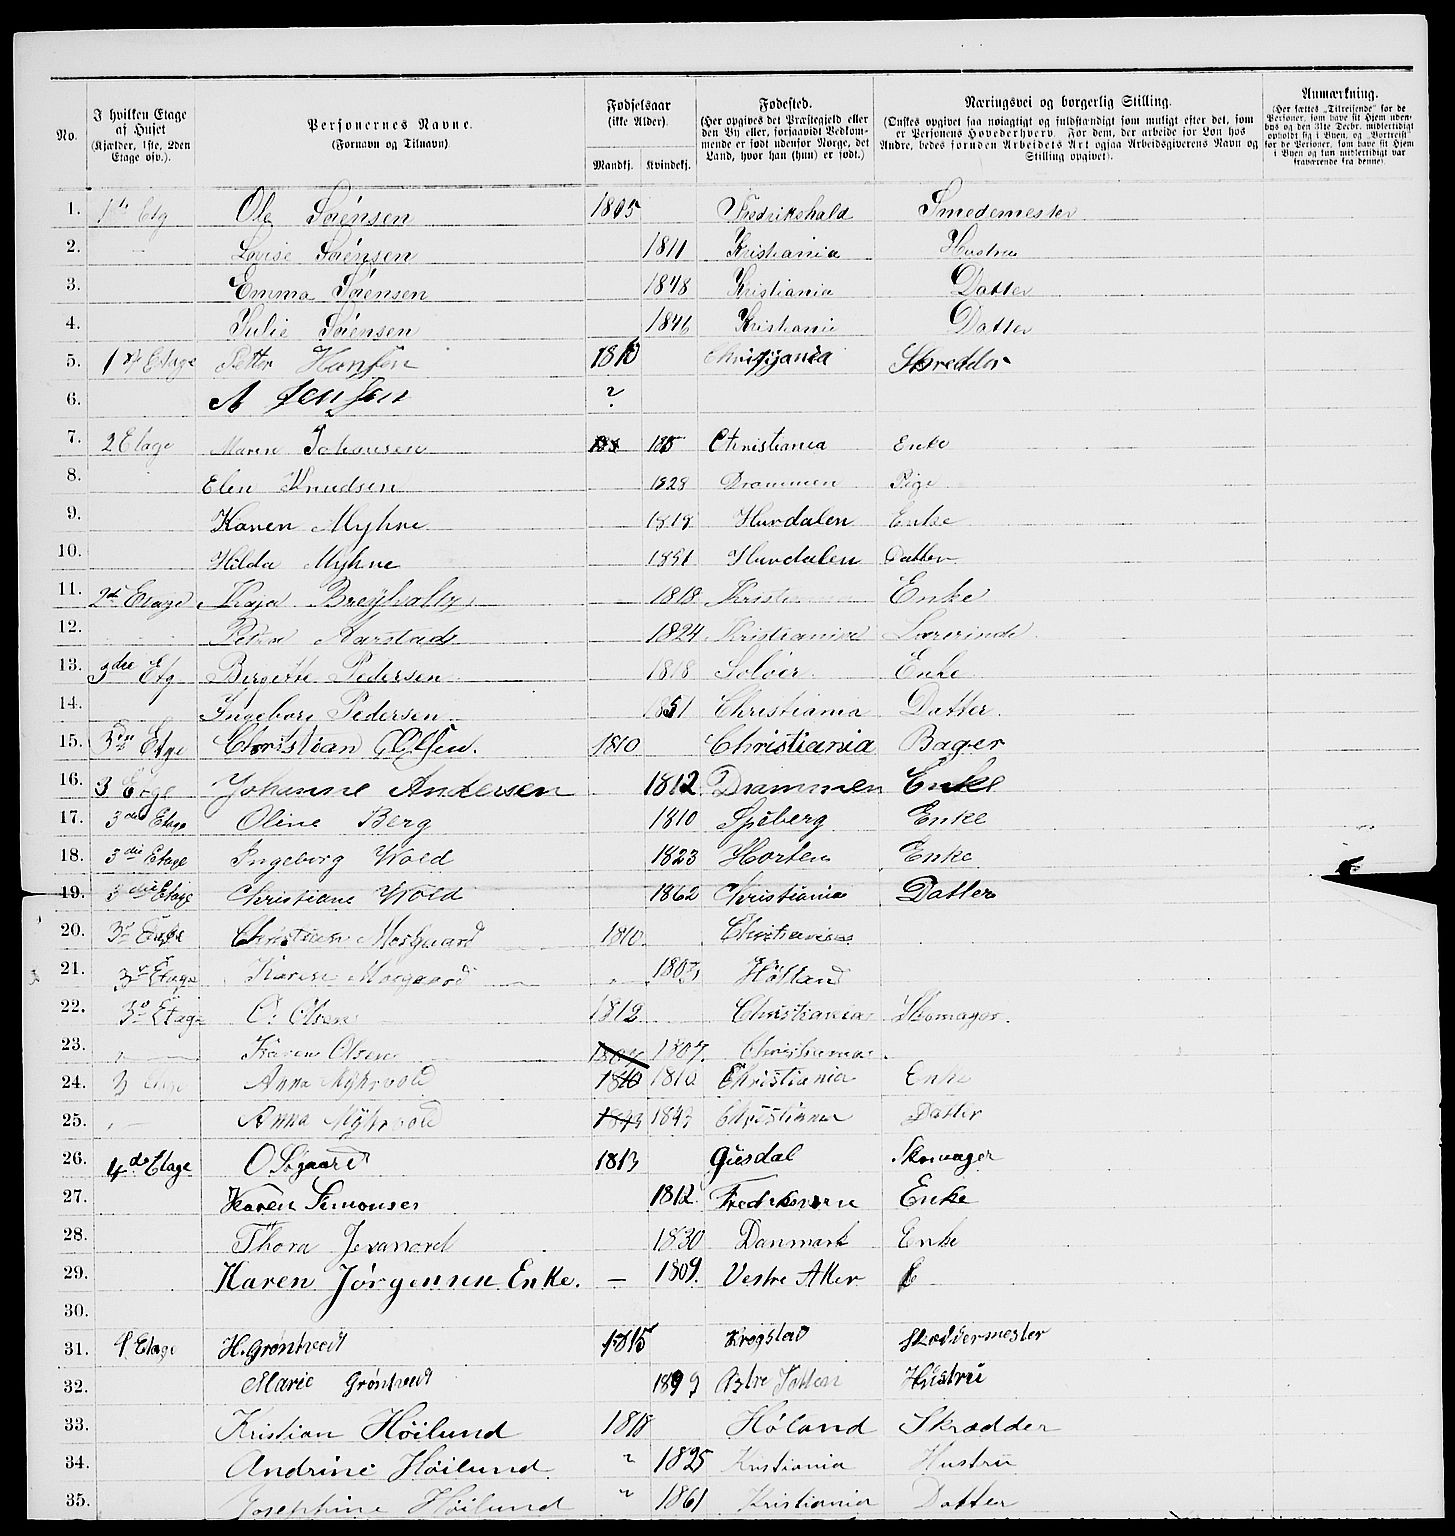 No. I hvilken Etage af Huset (Kjælder, 1ste, 2den Etage osv.). Personernes Navne. (Fornavn og Tilnavn) Fødselsaar (ikke Alder). Mandkj. Kvindekj. Fødested. (Her opgives det Præstegjeld eller den By eller, forsaavidt Vedkommende er født udenfor Norge, det Land, hvor han (hun) er født.) Næringsvei og borgerlig Stilling. (Ønskes opgivet saa nøiagtigt og fuldstændigt som muligt efter det, som er Personens Hovederhverv. For dem, der arbeide for Løn hos Andre, bedes foruden Arbeidets Art ogsaa Arbeidsgiverens Navn og Stilling opgivet). Anmærkning. (Her sættes „Tilreisende" for de Personer, som have sit Hjem udenbys og den 31te Decbr. midlertidigt opholdt sig i Byen, og „Bortreist" for de Personer, som have sit Hjem i Byen og kun midlertidigt var fraværende fra denne)
1. 1ste Etg Ole Sørensen 1805 Fredrikshald Smedemester
2. Lovise Sørensen 1811 Kristiania Hustru
3. Emma Sørensen 1848 Kristiania Datter
4. Julie Sørensen 1846 Kristiania Datter
5. 1st Etage Petter Hansen 1810 Christiania Skredder
6. A Jensen ?
7. 2 Etage Maren Johansen Christiania Enke
8. Elen Knudsen 1828 Drammen Pige
9. Karen Myhre 1818 Hurdalen Enke
10. Hilda Myhre 1851 Hurdalen Datter
11. 2de Etage Kaja 1818 Enke
12. Petra Aarstad 1824 Kristiania Lærerinde
13. 3die Etg Birgitte Pedersen 1818 Soløer Enke
14. Ingeborg Pedersen 1851 Christiania Datter.
15. Etge Christian Olsen. 1810 Christiania Bager
16. 3 Etge Johanne Andersen 1812 Drammen Enke
17. 3die Etage Oline Berg 1810 Spiberg Enke
18. 3die Etage Ingeborg Wold 1823 Horten Enke
19. 3die Etage Christiane Wold 1862 Christiania Datter
20. Christian Mosgaard 1810 Christiania
21. Etage Karen Mosgaard 1807 Høfland
22. Etage O: Olsen 1812 Christiania Skomager.
23. Karen Olsen 1807. Christiania
24. 3 Etge Anna Myhrvold 1810 1810 Christiania Enke
25. Anna Myhrvold 1843 1843 Christiania Datter
26. 4de Etage O Søgaard 1813 Gusdal Skomager
27. Karen Simonsen 1812 Enke
28. Thora 1830 Danmark Enke
29. Karen Jørgensen Enke. — 1809. Vestre Aker
30.
31. 4 Etage H. Grøntvedt 1815 Krogstad Skræddermester
32. Marie Grøntvedt Østre Totten Hustru
33. Kristian Høilund 1818 Høland Skrædder
34. Andrine Høilund. " 1825 Kristiania Hustru
35. Josephine Høilund " 1861 Kristiania Datter